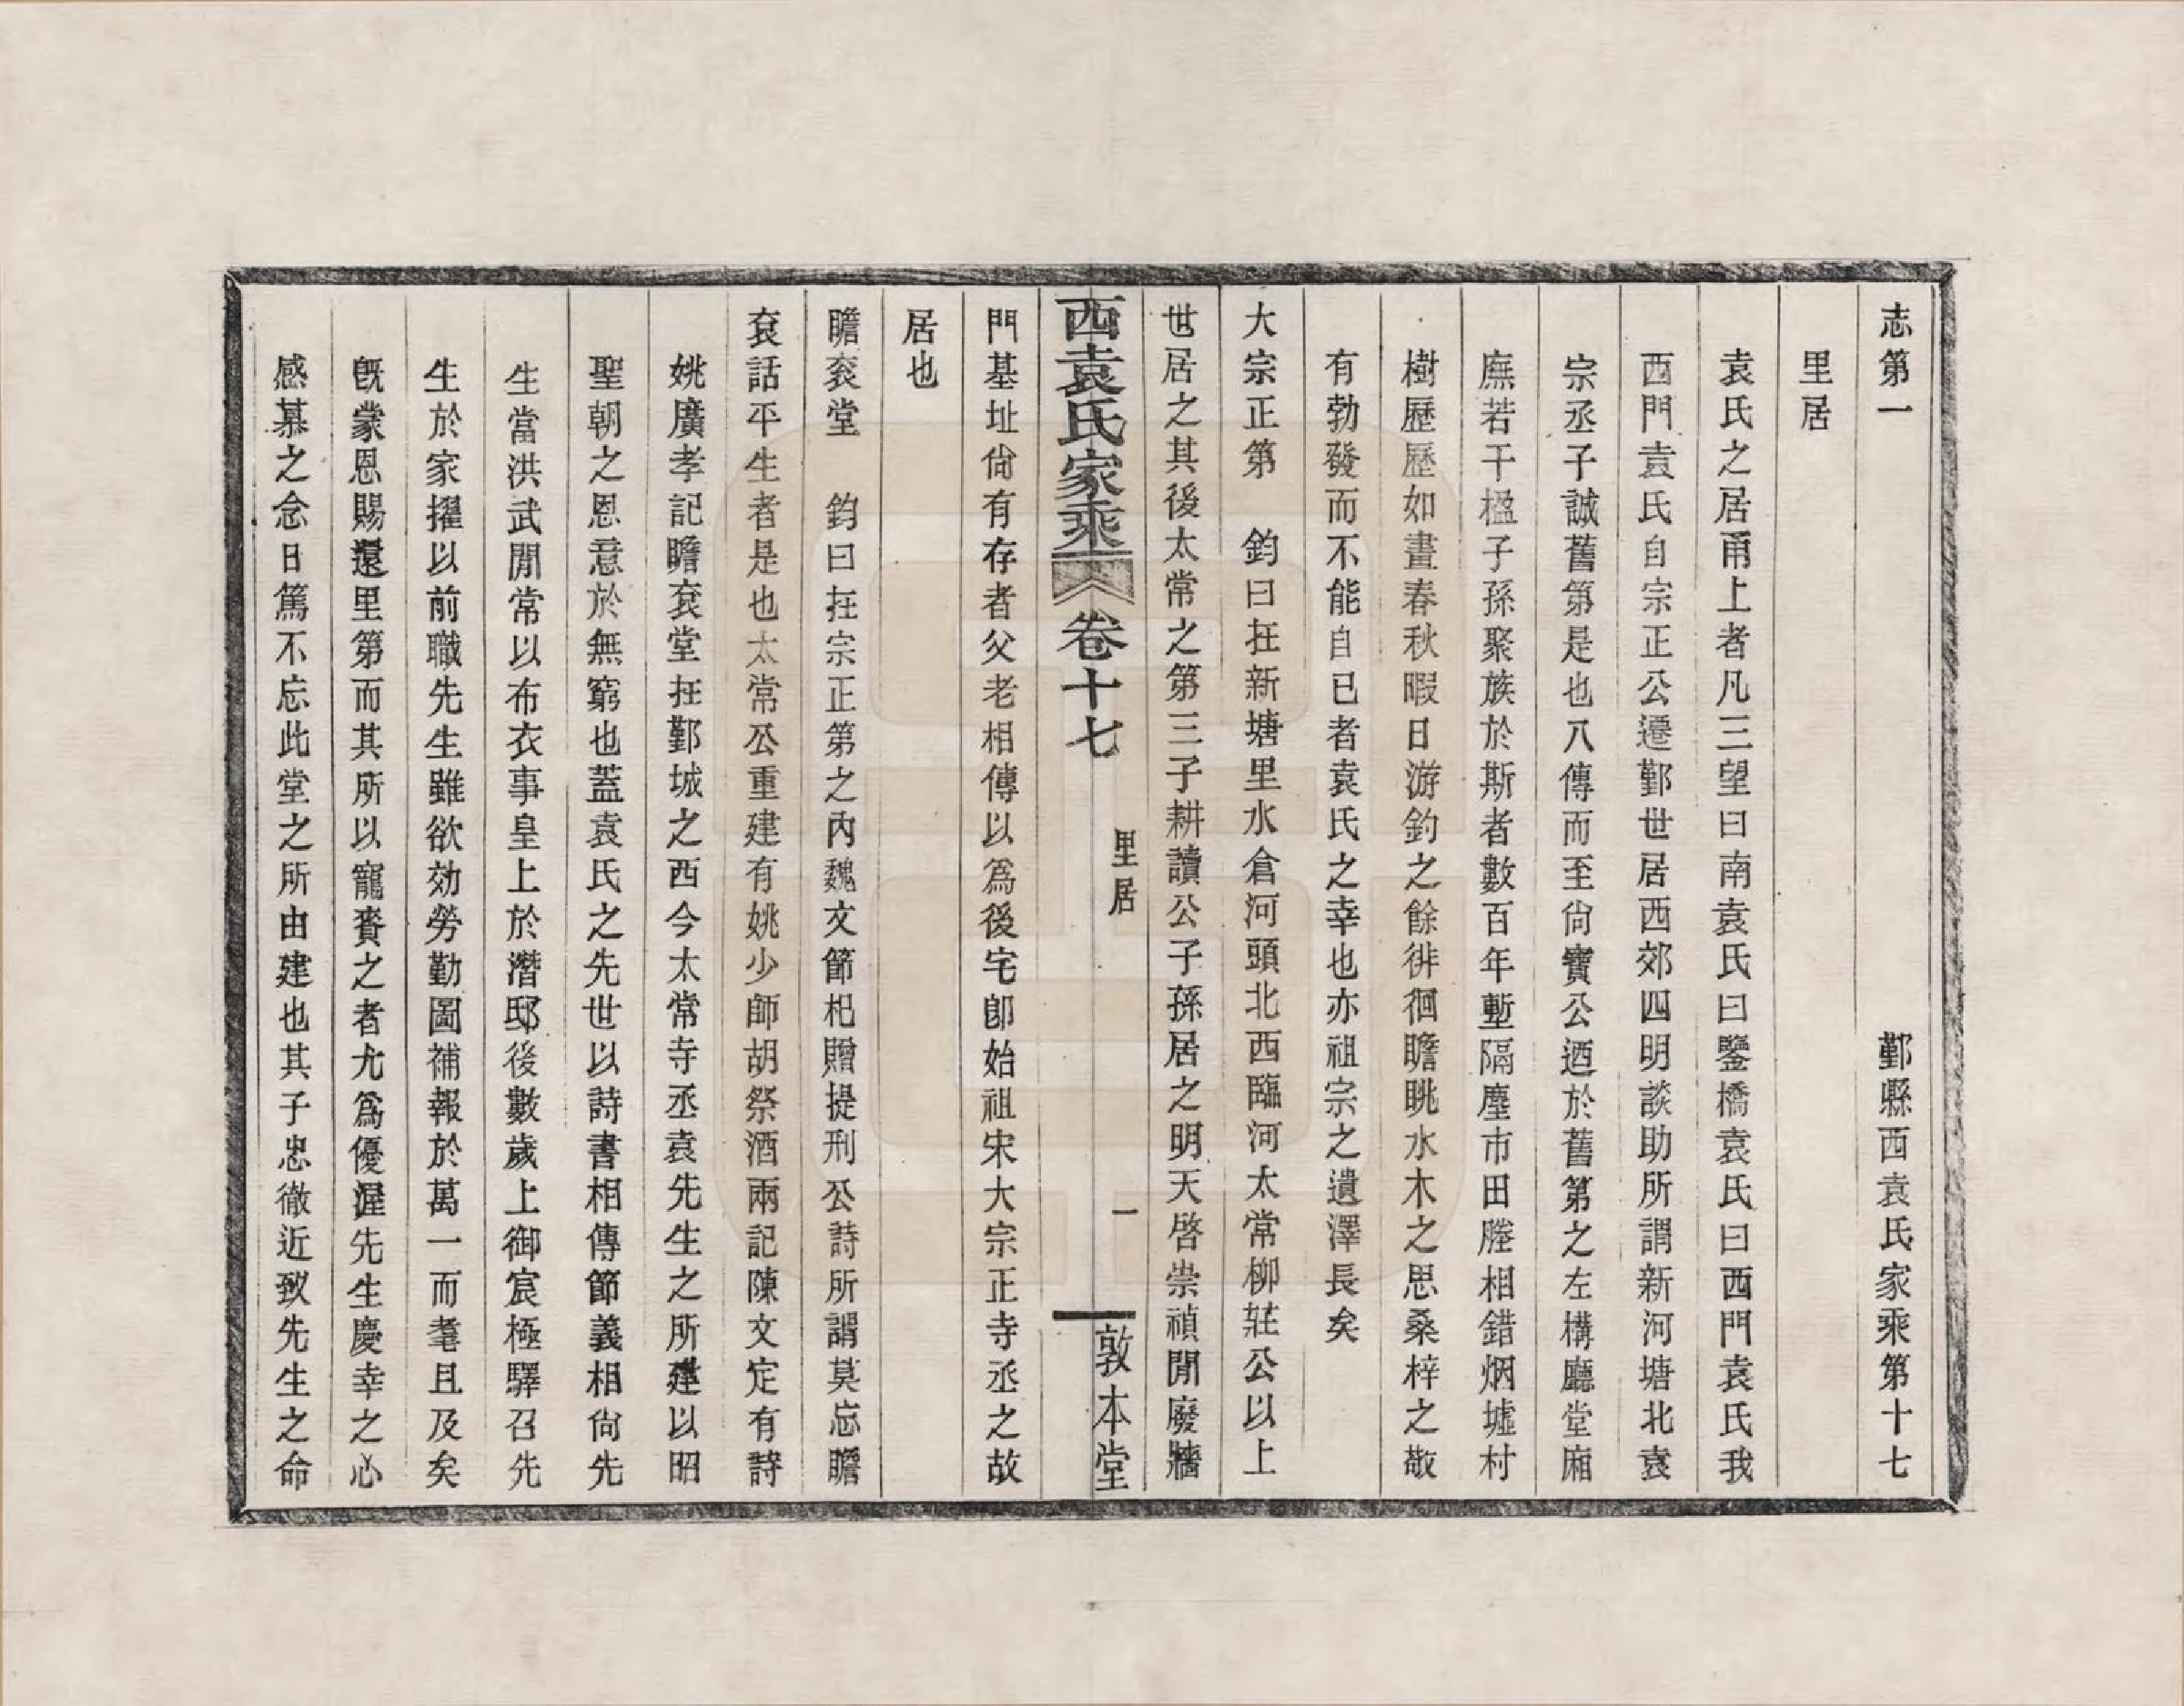 志第一　鄞縣西袁氏家乘第十七
里居
袁氏之居甬上者凡三望曰南袁氏曰鑒橋袁氏曰西門袁氏我
西門袁氏自宗正公遷鄞世居西郊四明談助所謂新河塘北袁
宗丞子誠舊第是也八傳而至尙寶公迺於舊第之左構廳堂廂
廡若干楹子孫聚族於斯者數百年塹隔塵市田塍相錯烟墟村
樹歷歷如畫春秋暇日游釣之餘徘徊瞻眺水木之思桑梓之敬
有勃發而不能自已者袁氏之幸也亦祖宗之遺澤長矣
大宗正第　鈞曰在新塘里水倉河頭北西臨河太常柳莊公以上
世居之其後太常之第三子耕讀公子孫居之明天啓崇禎閒廢牆
西袁氏家乘　卷十七　里居　一　敦本堂
門基址尙有存者父老相傳以爲後宅卽始祖宋大宗正寺丞之故
居也
瞻袞堂　鈞曰在宗正第之內魏文節杞贈提刑公詩所謂莫忘瞻
袞話平生者是也太常公重建有姚少師胡祭酒兩記陳文定有詩
姚廣孝記瞻袞堂在鄞城之西今太常寺丞袁先生之所建以昭
聖朝之恩意於無窮也蓋袁氏之先世以詩書相傳節義相尙先
生當洪武閒常以布衣事皇上於潛邸後數歲上御宸極驛召先
生於家擢以前職先生雖欲効勞勤圖補報於萬一而耄且及矣
旣蒙恩賜還里第而其所以寵賚之者尤爲優渥先生慶幸之心
感慕之念日篤不忘此堂之所由建也其子忠徹近致先生之命